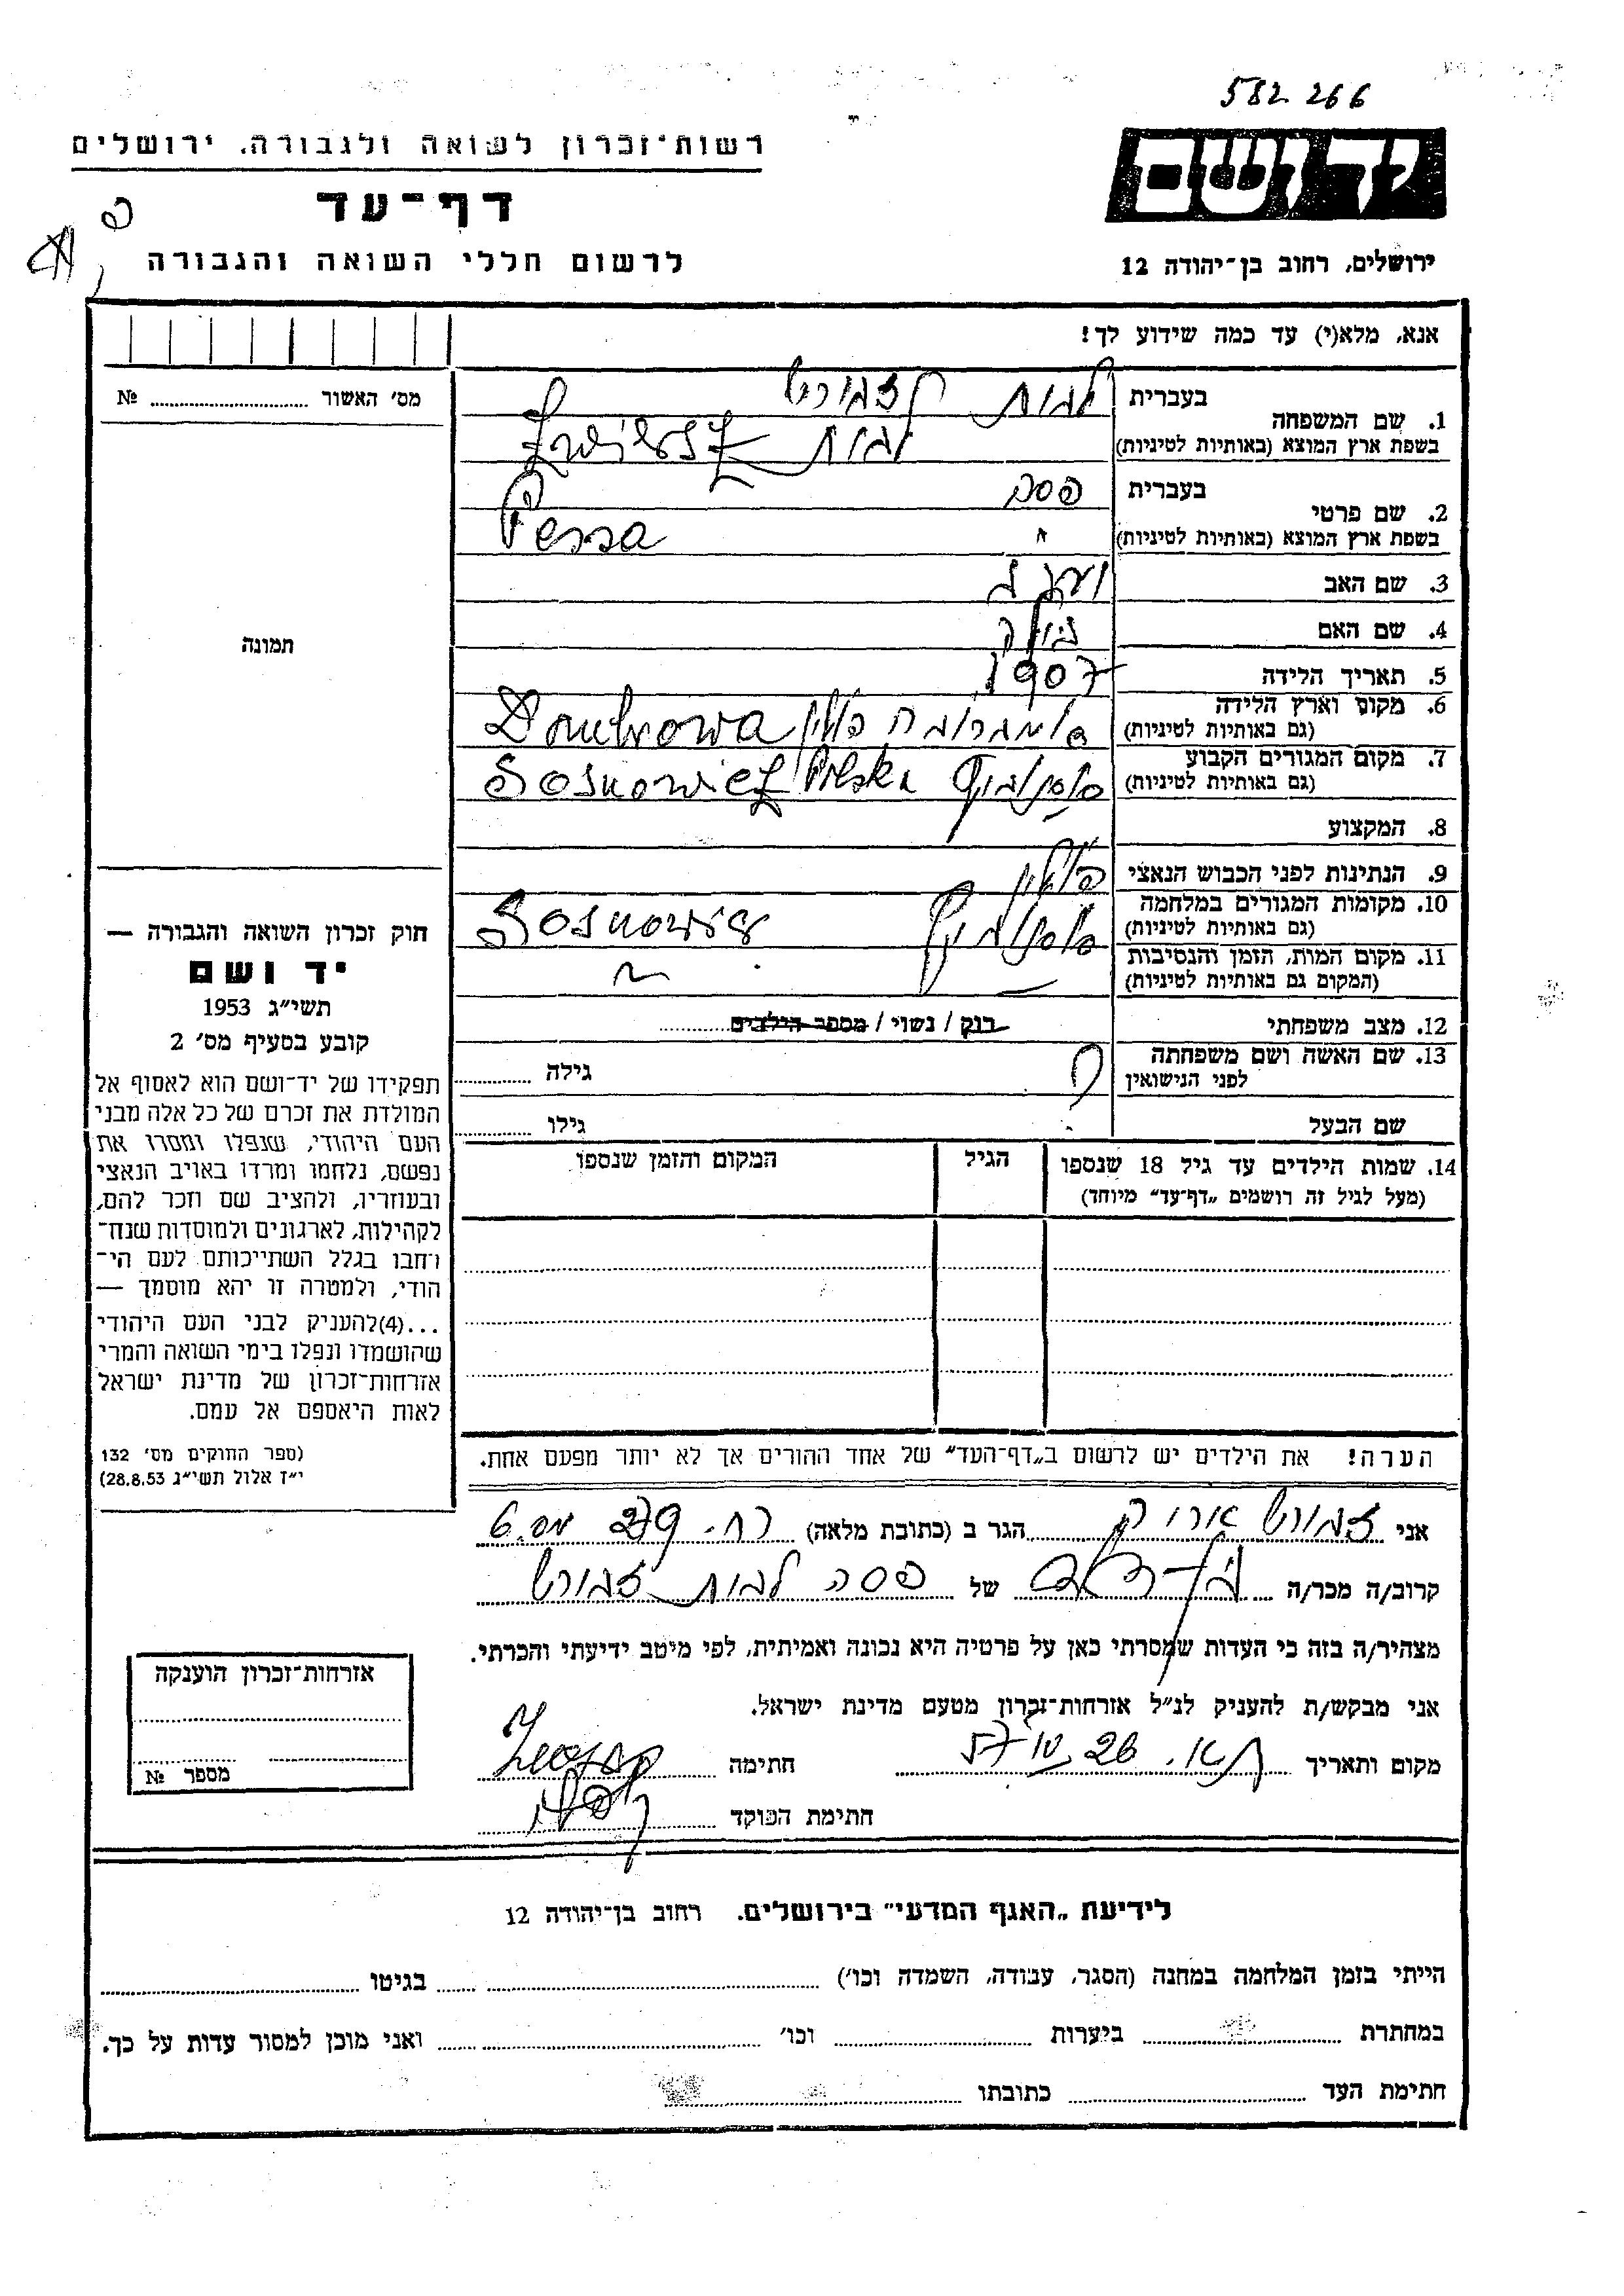 582 266
רשות־זכרון לשואה ולגבורה. ירושלים
יד ושם
דף־עד
לרשום חללי השואה והגבורה
ירושלים, רחוב בן־יהודה 12
אנא, מלא(י) עד כמה שידוע לך!
מס׳ האשור № 
1. שם המשפחה
בעברית לבית
בשפת ארץ המוצא (באותיות לטיניות) לבית
2. שם פרטי
בעברית פסה
בשפת ארץ המוצא (באותיות לטיניות) Pessa
3. שם האב
4. שם האם
5. תאריך הלידה 1907
6. מקום וארץ הלידה פולין
(גם באותיות לטיניות)
7. מקום המגורים הקבוע Polska
(גם באותיות לטיניות)
8. המקצוע
9. הנתינות לפני הכבוש הנאצי פולין
10. מקומות המגורים במלחמה
(גם באותיות לטיניות)
11. מקום המות, הזמן והנסיבות
(המקום גם באותיות לטיניות)
12. מצב משפחתי רוק / נשוי / מספר הילדים
13. שם האשה ושם משפחתה
לפני הנישואין גילה
שם הבעל גילו
14. שמות הילדים עד גיל 18 שנספו
(מעל לגיל זה רושמים „דף־עד״ מיוחד)
הגיל
המקום והזמן שנספו
הערה! את הילדים יש לרשום ב„דף־העד״ של אחד ההורים אך לא יותר מפעם אחת.
תמונה
חוק זכרון השואה והגבורה —
יד ושם
תשי״ג 1953
קובע בסעיף מס׳ 2
תפקידו של יד־ושם הוא לאסוף אל
המולדת את זכרם של כל אלה מבני
העם היהודי, שנפלו ומסרו את
נפשם, נלחמו ומרדו באויב הנאצי
ובעוזריו, ולהציב שם וזכר להם,
לקהילות, לארגונים ולמוסדות שנח־
רחבו בגלל השתייכותם לעם הי־
הודי, ולמטרה זו יהא מוסמך —
...(4)להעניק לבני העם היהודי
שהושמדו ונפלו בימי השואה והמרי
אזרחות־זכרון של מדינת ישראל
לאות היאספם אל עמם.
(ספר החוקים מס׳ 132
י״ז אלול תשי״ג 28.8.53)
אני הגר ב (כתובת מלאה) רח. 279 מס. 6
קרוב/ה מכר/ה של פסה לבית
מצהיר/ה בזה כי העדות שמסרתי כאן על פרטיה היא נכונה ואמיתית, לפי מיטב ידיעתי והכרתי.
אני מבקש/ת להעניק לנ״ל אזרחות־זכרון מטעם מדינת ישראל.
מקום ותאריך חתימה
חתימת הפוקד
אזרחות־זכרון הוענקה
מספר №
לידיעת „האגף המדעי״ בירושלים. רחוב בן־יהודה 12
הייתי בזמן המלחמה במחנה (הסגר, עבודה, השמדה וכו׳) בגיטו
במחתרת ביערות וכו׳ ואני מוכן למסור עדות על כך.
חתימת העד כתובתו